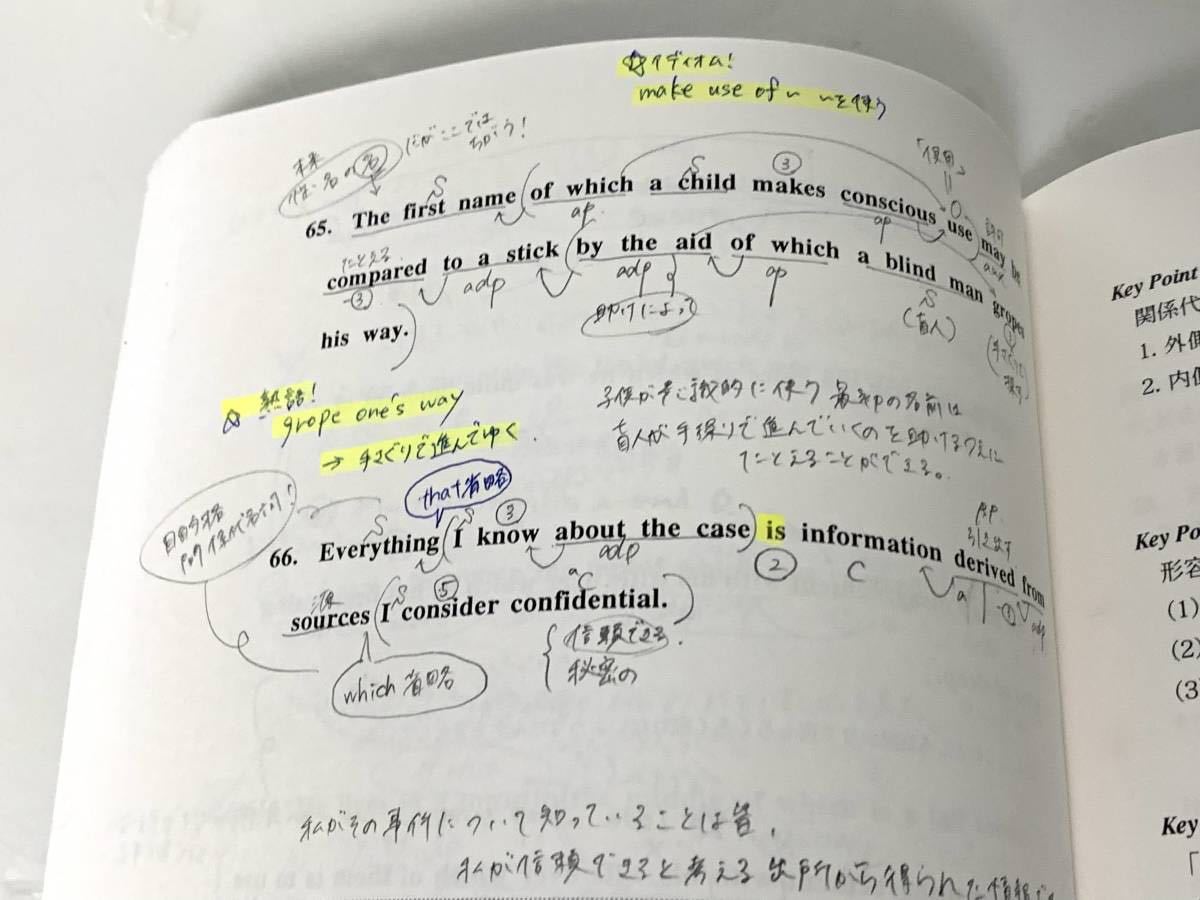 ☆イディオム!
make use of 〜 〜を使う
本来
性・名の名 だがここでは
ちがう!
S S ③ 「役用」
65. The first name (of which a child makes conscious use) may be
ap. ap
たとえる
compared to a stick (by the aid of which a blind man gropes
③ adp adp ap S ①
助けによって (盲人)
his way.)
☆ 熟語!
grope one's way
→ 手さぐりで進んでゆく.
子供が意識的に使う最初の名前は
盲人が手探りで進んでいくのを助けるつえに
たとえることができる。
that省略
S S ③ p.p.
66. Everything (I know about the case) is information derived from
adp ② C a ① adp
源 S ⑤ aC
sources (I consider confidential.)
which 省略
信頼できる.
秘密の
私がその事件について知っていることは皆,
私が信頼できると考える出所から得られた情報で
Key Point
関係代
1. 外側
2. 内側
Key Po
形容
(1)
(2)
(3)
Key
「